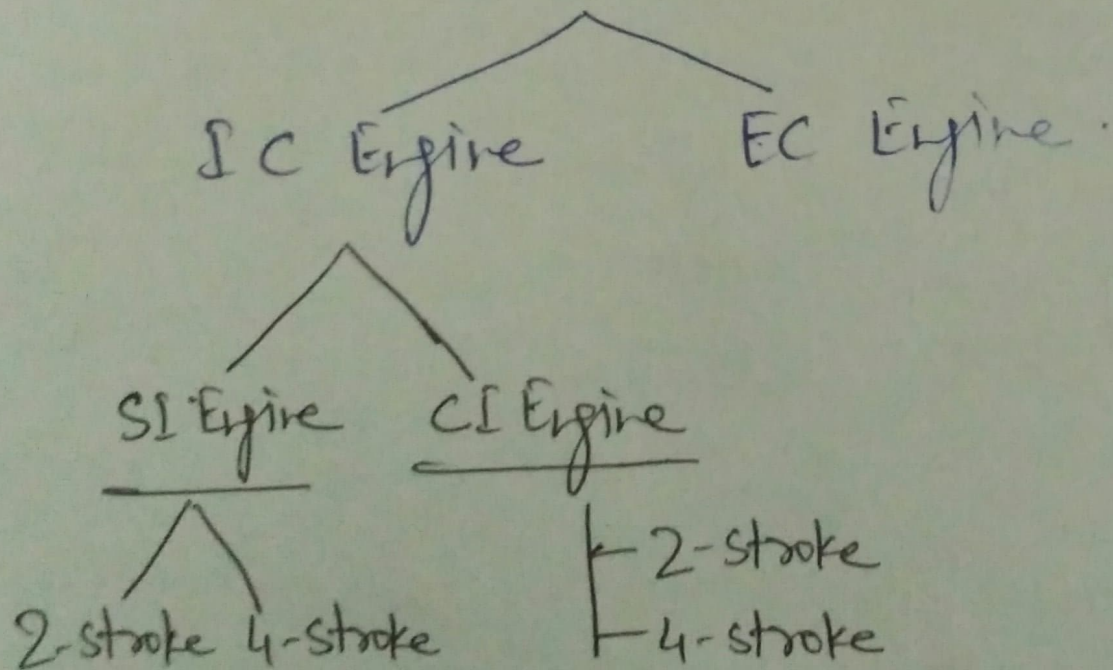 IC Engine EC Engine.
SI Engine CI Engine
2-stroke
2-stroke 4-stroke
4-stroke